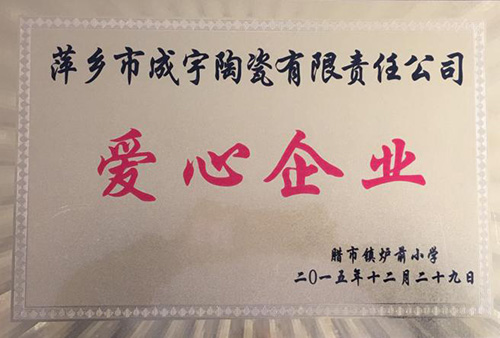 萍乡市成宇陶瓷有限责任公司
爱心企业
腊市镇炉前小学
二〇一五年十二月二十九日